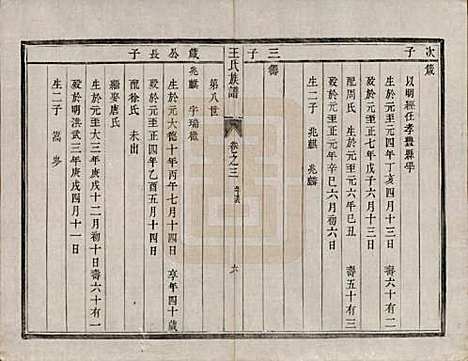 次葳
子
以明經任孝豐縣學
生於元至元四年丁亥四月十三日 壽六十有二
歿於元至正七年戊子六月十三日
配周氏 生於元至元六年己丑 壽五十有三
歿於元至正元年辛巳六月十三日
生二子 兆麒 兆麟
三壽
子
王氏族譜
卷之三
六
第八世
葳公
長子
兆麒 字瑞徵
生於元大德十年丙午七月十四日 享年四十歲
歿於元至正四年乙酉五月十四日
配徐氏 未出
繼娶唐氏
生於元至大三年庚戌十二月初十日 壽六十有一
歿於明洪武三年庚戌四月十一日
生二子 嵩